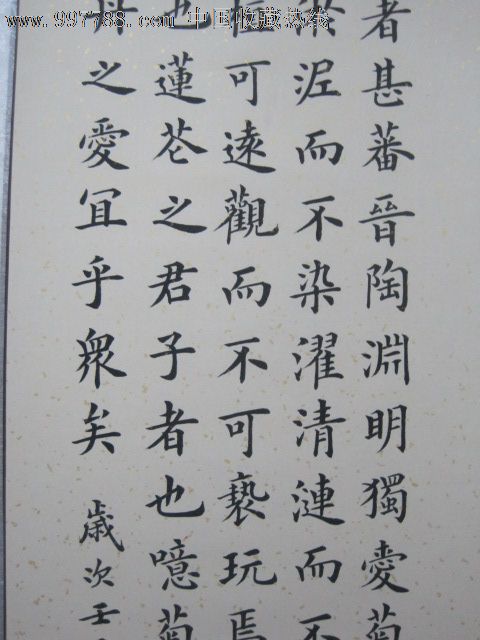 www.997788.com 中国收藏热线
者甚蕃晉陶淵明獨愛菊
淤泥而不染濯清漣而不
植可遠觀而不可褻玩焉
也蓮花之君子者也噫菊
丹之愛冝乎衆矣
歲次壬